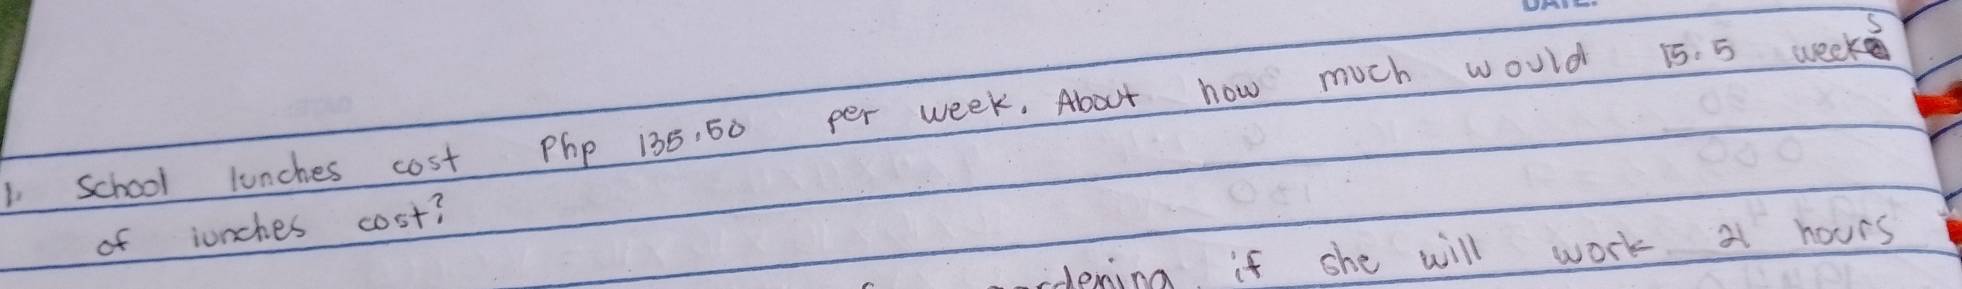 1. School lunches cost Php 135.50 per week. About how much would 15.5 weeks
of lunches cost?
if she will work 21 hours